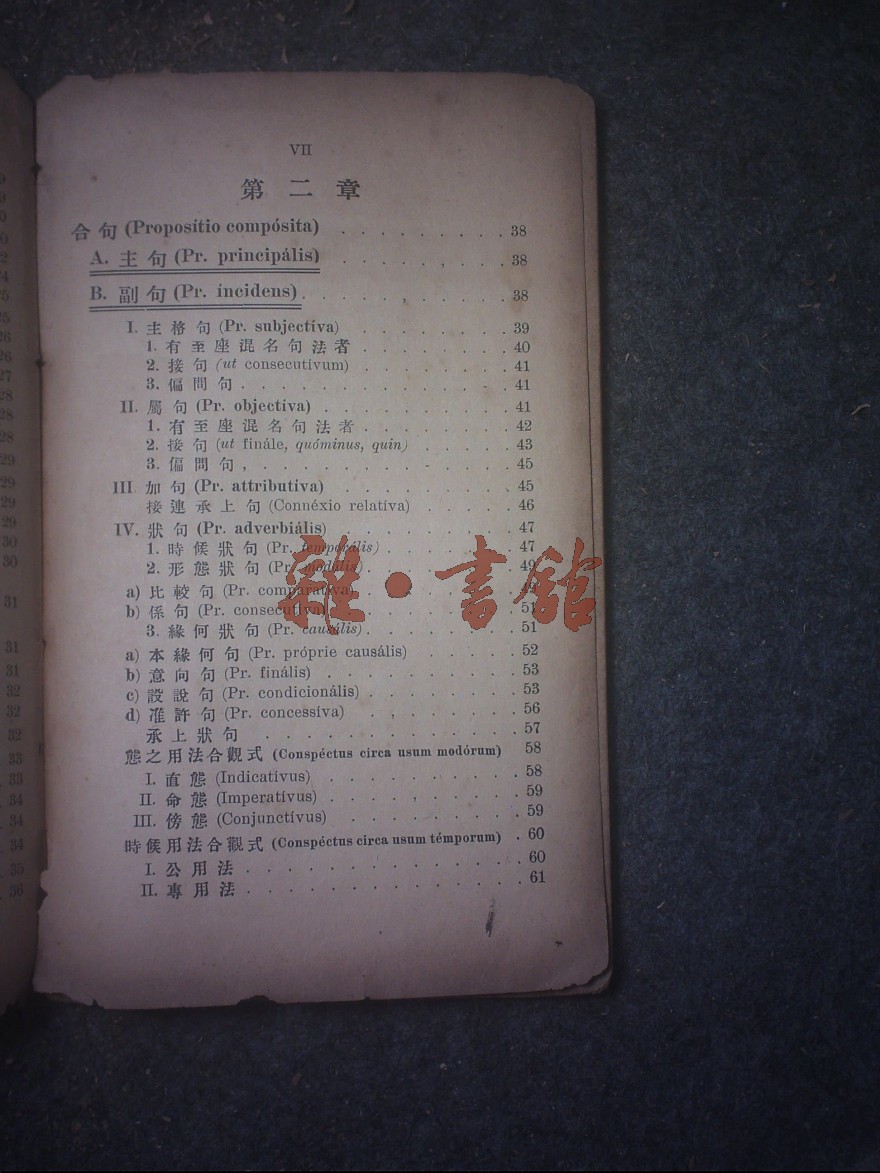 VII
第二章
合句 (Proposítio compósita) . . . . . . . . . 38
A. 主句 (Pr. principális) . . . . . . . . . 38
B. 副句 (Pr. íncidens) . . . . . . . . . . 38
I. 主格句 (Pr. subjectíva) . . . . . . . . 39
1. 有至座混名句法者 . . . . . . . . 40
2. 接句 (ut consecutívum) . . . . . . . . 41
3. 偏問句 . . . . . . . . . . . . . . 41
II. 屬句 (Pr. objectíva) . . . . . . . . . . 41
1. 有至座混名句法者 . . . . . . . . 42
2. 接句 (ut finále, quóminus, quin) . . . . . . 43
3. 偏問句 . . . . . . . . . . . . . . 45
III 加句 (Pr. attributíva) . . . . . . . . . . 45
接連承上句 (Connéxio relatíva) . . . . . 46
IV. 狀句 (Pr. adverbiális) . . . . . . . . . . 47
1. 時候狀句 (Pr. temporális) . . . . . . . 47
2. 形態狀句 (Pr. modális) . . . . . . . . 49
a) 比較句 (Pr. comparatíva) . . . . . . . . 49
b) 係句 (Pr. consecutíva) . . . . . . . . . 51
3. 緣何狀句 (Pr. causális) . . . . . . . . 51
a) 本緣何句 (Pr. próprie causális) . . . . . . 52
b) 意向句 (Pr. finális) . . . . . . . . . . 53
c) 設說句 (Pr. condicionális) . . . . . . . . 53
d) 准許句 (Pr. concessíva) . . . . . . . . 56
承上狀句 . . . . . . . . . . . . . 57
態之用法合觀式 (Conspéctus circa usum modórum) 58
I. 直態 (Indicatívus) . . . . . . . . . . 58
II. 命態 (Imperatívus) . . . . . . . . . . 59
III. 傍態 (Conjunctívus) . . . . . . . . . . 59
時候用法合觀式 (Conspéctus circa usum témporum) . 60
I. 公用法 . . . . . . . . . . . . . . 60
II. 專用法 . . . . . . . . . . . . . . 61
雜·書館
9
9
0
0
2
4
5
25
26
26
27
28
28
28
29
29
29
29
30
30
31
31
31
32
32
32
33
33
34
34
34
35
36